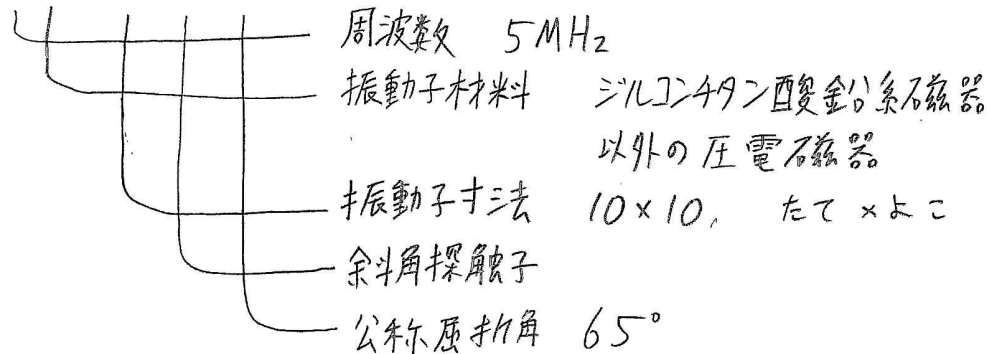 周波数 5MHz
振動子材料 ジルコンチタン酸鉛系磁器
以外の圧電磁器
振動子寸法 10×10, たて×よこ
斜角探触子
公称屈折角 65°